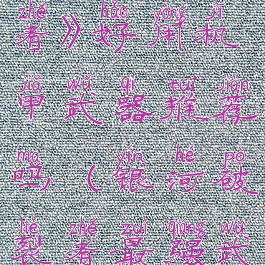 zhě hǎo yòng jī
者》好用机
jiǎ wǔ qì tuī jiàn
甲武器推荐
ma yín hé pò
吗,(银河破
liè zhě zuì qiáng wǔ
裂者最强武